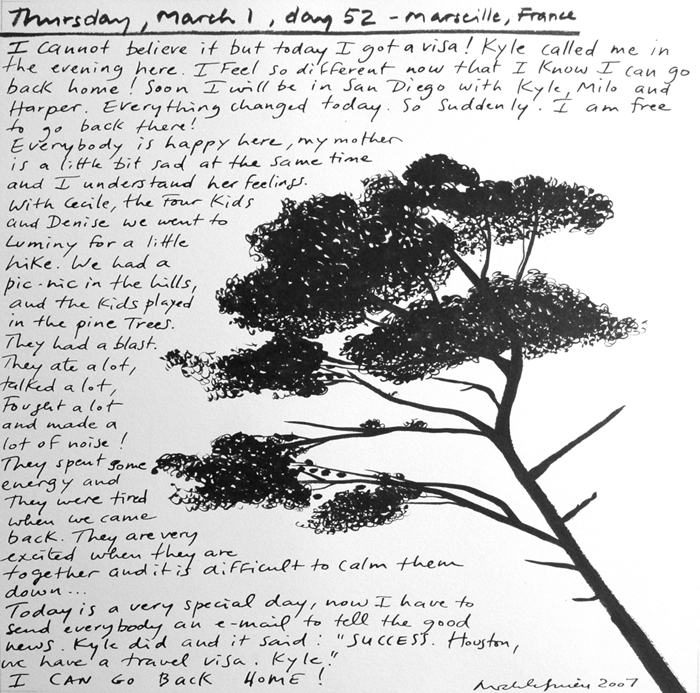 Thursday, March 1, day 52 - Marseille, France
I cannot believe it but today I got a visa! Kyle called me in
the evening here. I Feel so different now that I Know I can go
back home! Soon I will be in San Diego with Kyle, Milo and
Harper. Everything changed today. So Suddenly. I am free
to go back there!
Everybody is happy here, my mother
is a little bit sad at the same time
and I understand her feelings.
With Cecile, the Four Kids
and Denise we went to
Luminy for a little
hike. We had a
pic-nic in the hills,
and the Kids played
in the pine Trees.
They had a blast.
They ate a lot,
talked a lot,
Fought a lot
and made a
lot of noise!
They spent some
energy and
They were tired
when we came
back. They are very
excited when they are
together and it is difficult to calm them
down...
Today is a very special day, now I have to
send everybody an e-mail to tell the good
news. Kyle did and it said: "SUCCESS. Houston,
we have a travel visa. Kyle."
I CAN GO BACK HOME!
2007